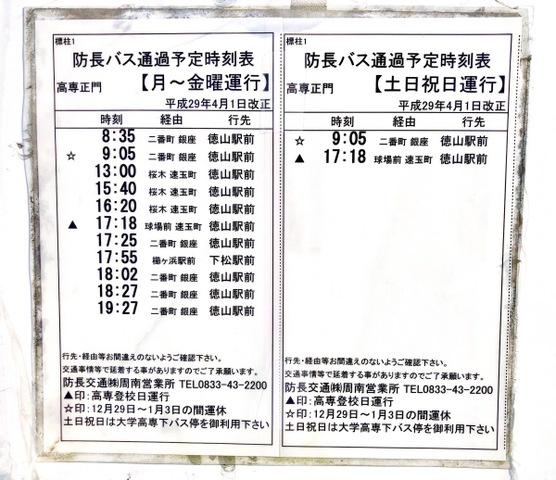 標柱1
防長バス通過予定時刻表
高専正門 【月～金曜運行】
平成29年4月1日改正
時刻 経由 行先
8:35 二番町 銀座 徳山駅前
☆ 9:05 二番町 銀座 徳山駅前
13:00 桜木 速玉町 徳山駅前
15:40 桜木 速玉町 徳山駅前
16:20 桜木 速玉町 徳山駅前
▲ 17:18 球場前 速玉町 徳山駅前
17:25 二番町 銀座 徳山駅前
17:55 櫛ヶ浜駅前 下松駅前
18:02 二番町 銀座 徳山駅前
18:27 二番町 銀座 徳山駅前
19:27 二番町 銀座 徳山駅前
行先・経由等お間違えのないようご確認下さい。
交通事情等で延着する事がありますのでご了承願います。
防長交通㈱周南営業所 TEL0833-43-2200
▲印：高専登校日運行
☆印：12月29日～1月3日の間運休
土日祝日は大学高専下バス停を御利用下さい
標柱1
防長バス通過予定時刻表
高専正門 【土日祝日運行】
平成29年4月1日改正
時刻 経由 行先
☆ 9:05 二番町 銀座 徳山駅前
▲ 17:18 球場前 速玉町 徳山駅前
行先・経由等お間違えのないようご確認下さい。
交通事情等で延着する事がありますのでご了承願います。
防長交通㈱周南営業所 TEL0833-43-2200
▲印：高専登校日運行
☆印：12月29日～1月3日の間運休
土日祝日は大学高専下バス停を御利用下さい